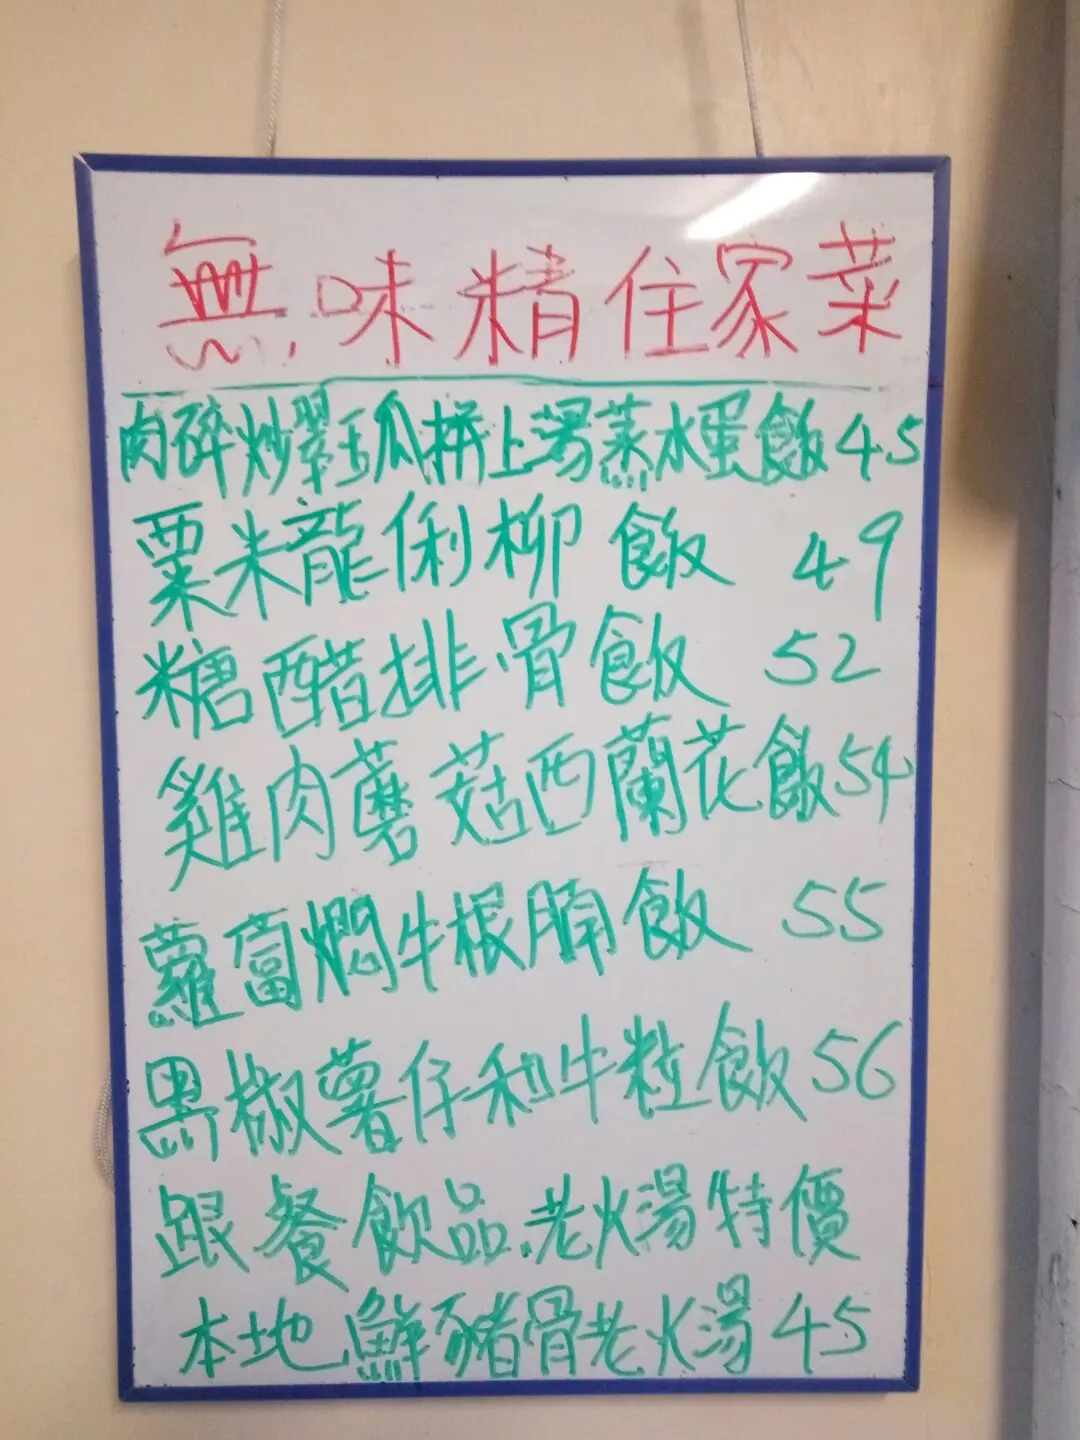 無味精住家菜
肉碎炒翠玉瓜拼上湯蒸水蛋飯 45
粟米龍俐柳飯 49
糖醋排骨飯 52
雞肉蘑菇西蘭花飯 54
蘿蔔燜牛根腩飯 55
黑椒薯仔和牛粒飯 56
跟餐飲品.老火湯特價
本地鮮豬骨老火湯 45